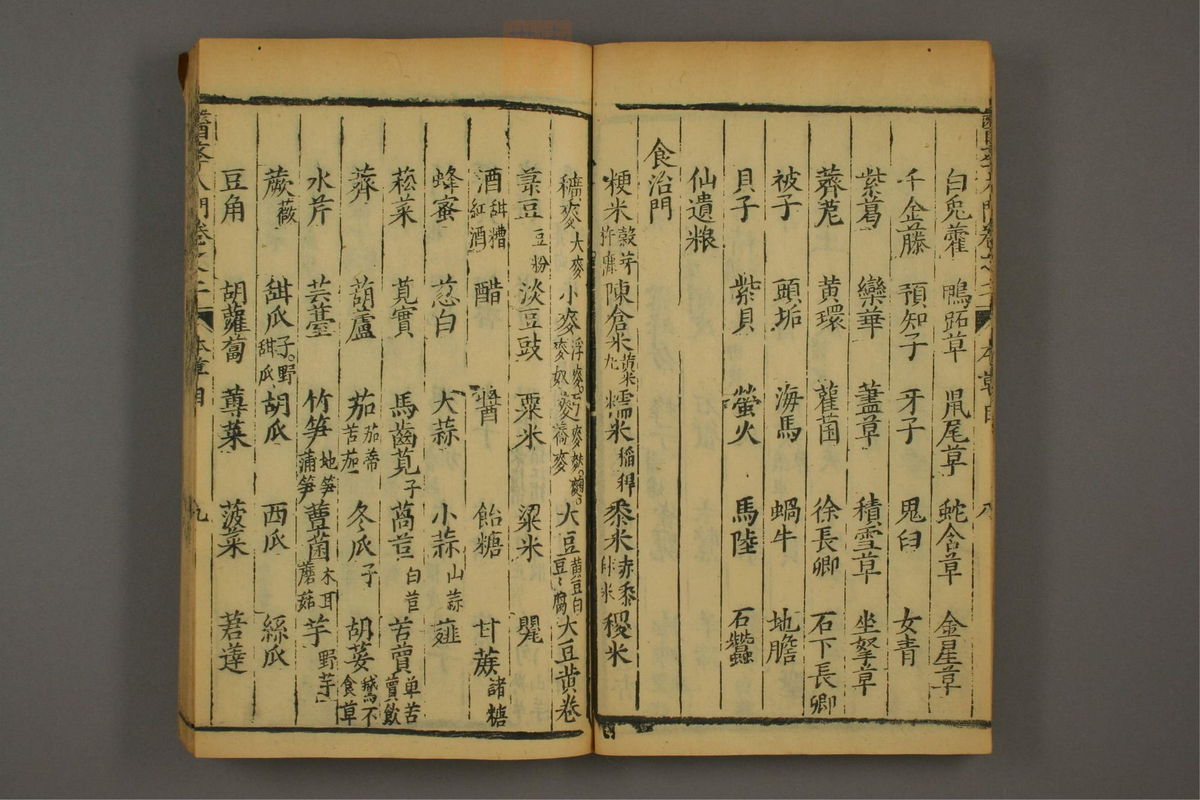 白兎藿 鴨跖草 鼠尾草 蛇含草 金星草
千金藤 預知子 牙子 鬼臼 女青
紫葛 欒華 藎草 積雪草 坐拏草
蕣芫 黃環 雚菌 徐長卿 石下長卿
被子 頭垢 海馬 蝸牛 地膽
貝子 紫貝 螢火 馬陸 石蠶
仙遺粮
食治門
粳米 穀芽 杵糠 陳倉米 黃米 糯米 稲稈 黍米 赤黍 稷米
穬麥 大麥 小麥 浮麥 麥奴 蕎麥 大豆 黃豆 白豆 豆腐 大豆黃卷
藊豆 豆粉 淡豆豉 粟米 粱米 甖
酒 甜糟 紅酒 醋 醬 飴糖 甘蔗 諸糖
蜂蜜 葱白 大蒜 小蒜 山蒜 薤
菘菜 莧實 馬齒莧 子 萵苣 白苣 苦蕒 单苦蕒飲
薺 葫蘆 茄 茄蒂 苦茄 冬瓜 子 胡荽 鵝不食草
水芹 芸薹 竹笋 地笋 蒲笋 蕈菌 木耳 蘑菇 芋 野芋
蕨 薇 甜瓜 子 野甜瓜 胡瓜 西瓜 絲瓜
豆角 胡蘿蔔 蓴菜 菠菜 莙薘
醫學入門卷之二 本草目 九
本草目 八